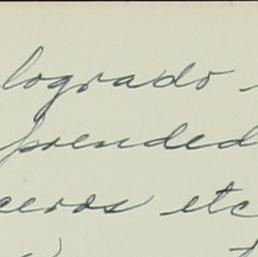 logrado
prended
ceros etc